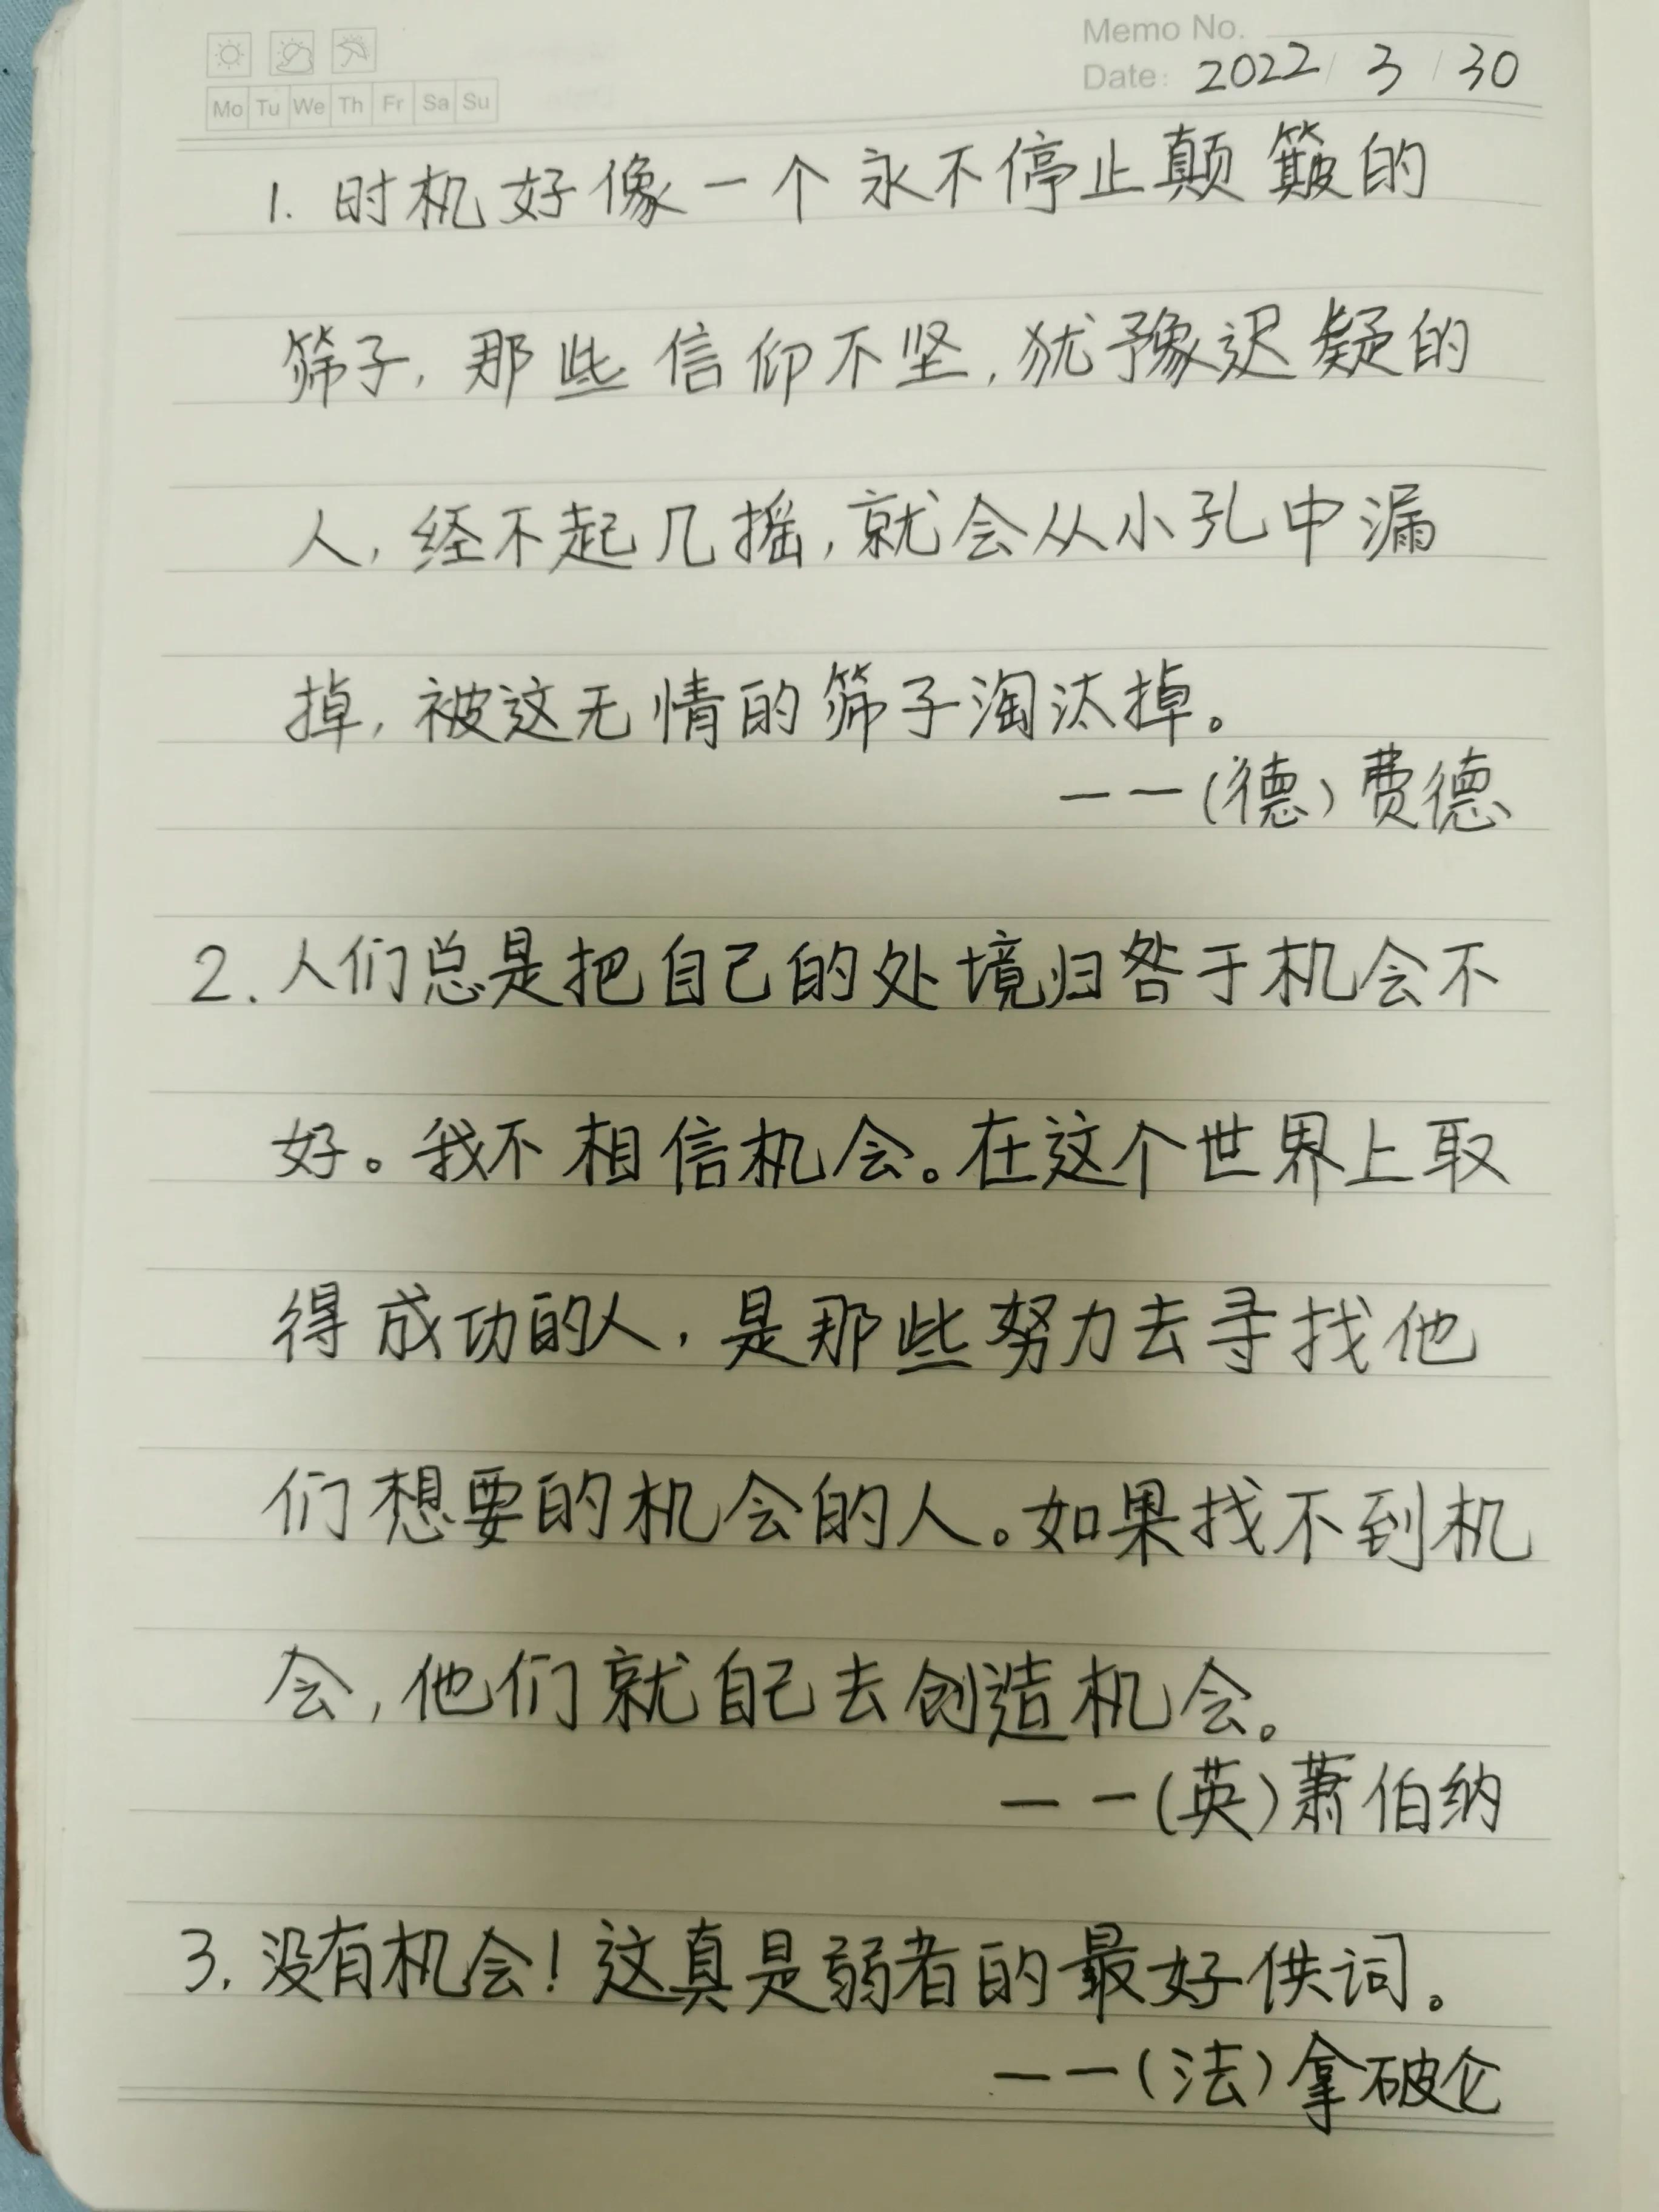 Memo No.
Date: 2022 / 3 / 30
Mo Tu We Th Fr Sa Su
1. 时机好像一个永不停止颠簸的
筛子,那些信仰不坚,犹豫迟疑的
人,经不起几摇,就会从小孔中漏
掉,被这无情的筛子淘汰掉。
——(德)费德
2. 人们总是把自己的处境归咎于机会不
好。我不相信机会。在这个世界上取
得成功的人,是那些努力去寻找他
们想要的机会的人。如果找不到机
会,他们就自己去创造机会。
——(英)萧伯纳
3. 没有机会!这真是弱者的最好供词。
——(法)拿破仑